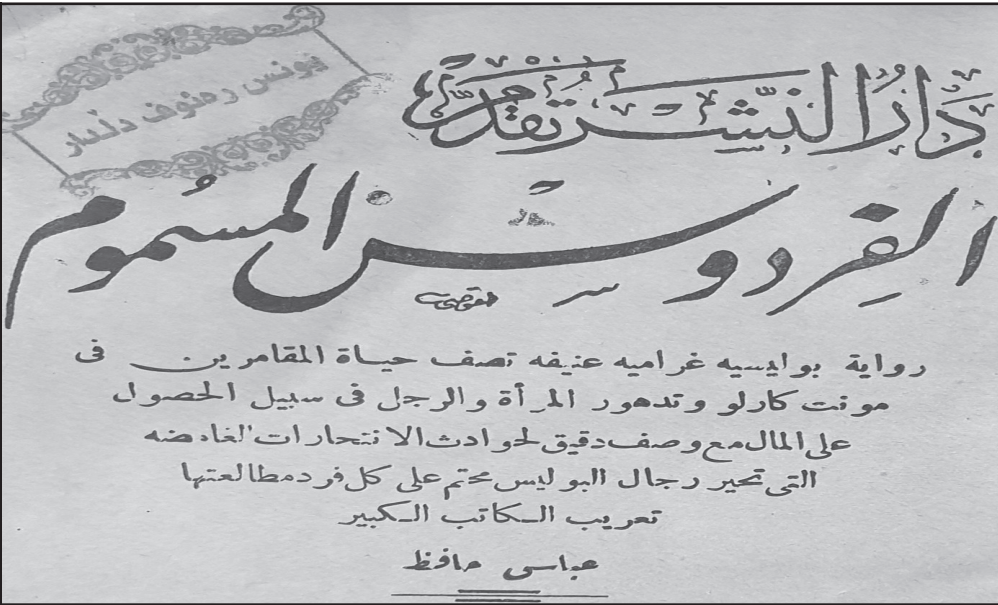 يونس رەئوف دلدار
دار النشر تقدم
الفردوس المسموم
رواية بوليسيه غراميه عنيفه تصف حياة المقامرين فى
مونت كارلو وتدهور المرأة والرجل فى سبيل الحصول
على المال مع وصف دقيق لحوادث الانتحارات الغامضه
التى تحير رجال البوليس محتم على كل فرد مطالعتها
تعريب الكاتب الكبير
عباس حافظ